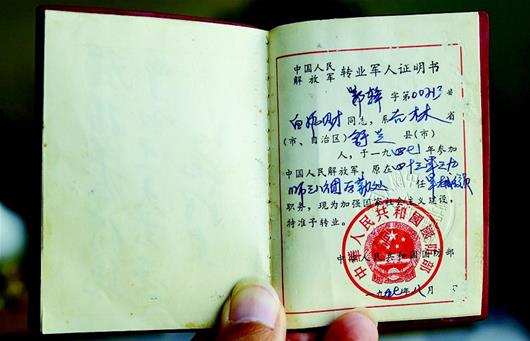 中国人民
解放军 转业军人证明书
字第00213号
白 财同志，系吉林省
(市、自治区)舒兰县(市)
人，于一九四七年参加
中国人民解放军，原在四十三军
师 团后勤处 任军械员
职务，现为加强国家社会主义建设，
特准予转业。
中华人民共和国国防部
中华人民共和国国防部
一九五七年八月